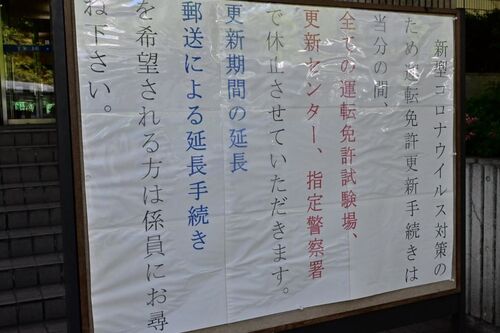 新型コロナウイルス対策の
ため運転免許更新手続きは
当分の間、
全ての運転免許試験場、
更新センター、指定警察署
で休止させていただきます。
更新期間の延長
郵送による延長手続き
を希望される方は係員にお尋
ね下さい。